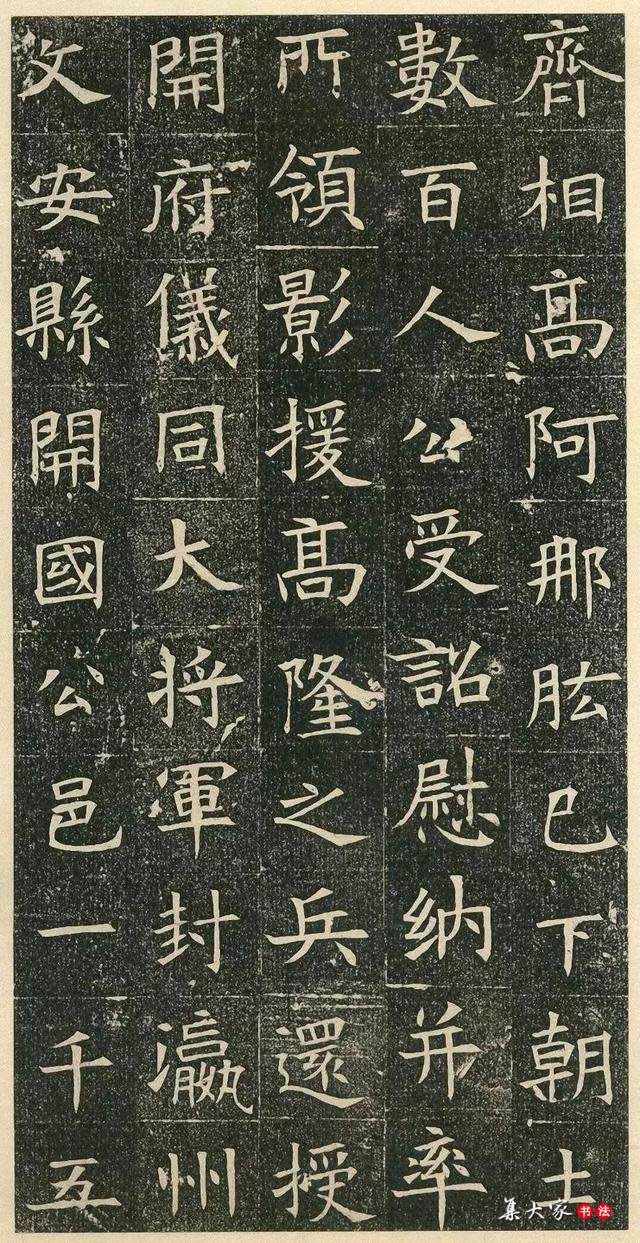 齊相髙阿那肱已下朝士
數百人公受詔慰納并率
所領影援髙隆之兵還授
開府儀同大將軍封瀛州
文安縣開國公邑一千五
集大家书法